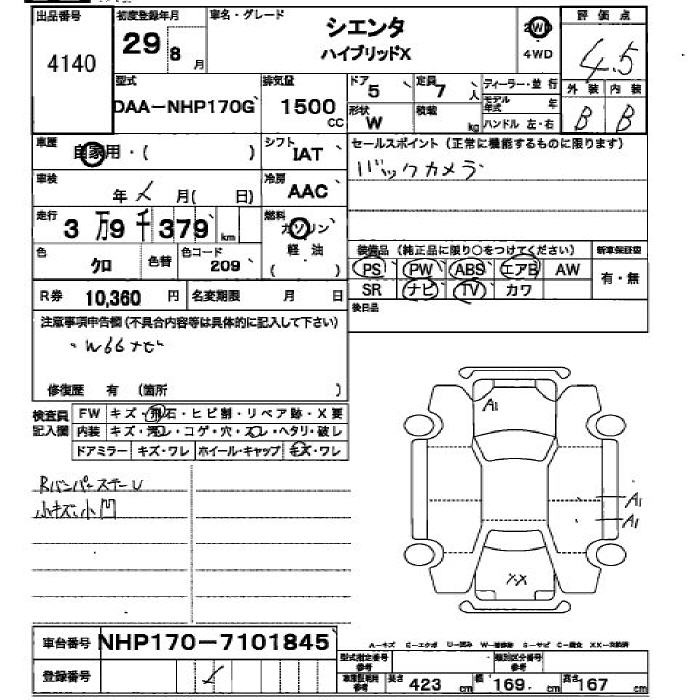 出品番号 初度登録年月 車名・グレード 評価点
4140 29 8 月 シエンタ ハイブリッドX 2WD 4WD 4.5
型式 排気量 ドア 5 定員 7 人 ディーラー・並 行 外 装 内 装
DAA-NHP170G 1500 CC 形状 W 積載 kg モデル年式 年 ハンドル 左・右 B B
車歴 自家用・( ) シフト IAT セールスポイント (正常に機能するものに限ります)
車検 年 月( 日) 冷房 AAC バックカメラ
走行 3 万 9 千 379 km 燃料 ガソリン 軽油 ( )
色 クロ 色替 色コード 209 装備品 (純正品に限り○をつけてください) 新車保証書
PS PW ABS エアB AW 有・無
R券 10,360 円 名変期限 月 日 SR ナビ TV カワ
注意事項申告欄(不具合内容等は具体的に記入して下さい) 後日品
・W66ナビ
修復歴 有 (箇所 )
検査員記入欄 FW キズ・飛石・ヒビ割・リペア跡・X要
内装 キズ・汚レ・コゲ・穴・スレ・ヘタリ・破レ
ドアミラー キズ・ワレ ホイール・キャップ キズ・ワレ
A1
RバンパーステーU
小キズ・小凹
A1
A1
XX
車台番号 NHP170-7101845
A-キズ E-エクボ U-凹み W-補修跡 S-サビ C-腐食 XX-交換済
登録番号 型式指定番号参考 類別区分番号参考
車庫証明用参考 長さ 423 cm 幅 169. cm 高さ 167 cm